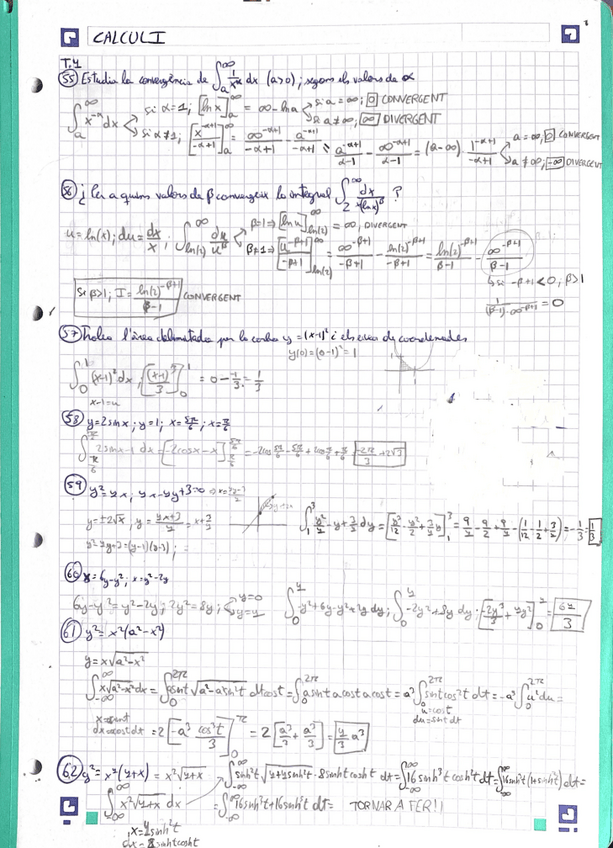 CALCUL I
T.4
55 Estudia la convergència de ∫_a^∞ 1/x^α dx (a>0); segons els valors de α
∫_a^∞ x^-α dx si α=1; [ln x]_a^∞ = ∞ - ln a si a=∞; 0 CONVERGENT
si a≠∞; ∞ DIVERGENT
si α≠1; [x^(-α+1)/(-α+1)]_a^∞ = ∞^(-α+1)/(-α+1) - a^(-α+1)/(-α+1); a^(-α+1)/(α-1) - ∞^(-α+1)/(α-1) = (a-∞) · 1^(-α+1)/(-α+1) a=∞; 0 CONVERGENT
a≠∞; -∞ DIVERGENT
56 ¿Per a quins valors de β convergeix la integral ∫_2^∞ dx/(x(ln x)^β) ?
u = ln(x); du = dx/x; ∫_ln(2)^∞ du/u^β β=1 ⇒ [ln u]_ln(2)^∞ = ∞, DIVERGENT
β≠1 ⇒ [u^(-β+1)/(-β+1)]_ln(2)^∞ = ∞^(-β+1)/(-β+1) - ln(2)^(-β+1)/(-β+1) = ln(2)^(-β+1)/(β-1) - ∞^(-β+1)/(β-1)
si -β+1<0, β>1
Si β>1; I = ln(2)^(-β+1)/(β-1) CONVERGENT
1/((β-1)·∞^(β-1)) = 0
57 Troba l'àrea delimitada per la corba y=(x-1)² i els eixos de coordenades
y(0)=(0-1)²=1
∫_0^1 (x-1)² dx; [(x-1)³/3]_0^1 = 0 - -1/3 = 1/3
x-1=u
58 y=2sinx; y=1; x=5π/6; x=π/6
2sinx-1 dx = [-2cosx-x] = -2cos 5π/6 - 5π/6 + -2π/3 + 2√3
59 y²=4x; 4x-4y+3=0
y=±2√x, y=(4x+3)/4 = x+3/4
∫_1^3 y²/4 - y + 3/4 dy = [y³/12 - y²/2 + 3/4 y]_1^3 = 9/4 - 9/2 + 9/4 - (1/12 - 1/2 + 3/4) = -1/3 = 1/3
y²-4y+3=(y-1)(y-3);
60 x=6y-y²; x=y²-2y
6y-y²=y²-2y; 2y²=8y; y=0
y=4
∫_0^4 -y²+6y-y²+2y dy; ∫_0^4 -2y²+8y dy; [-2y³/3+4y²]_0^4 = 64/3
61 y²=x²(a²-x²)
y=x√(a²-x²)
∫ x√(a²-x²) dx = ∫_0^2π a sint √(a²-a²sin²t) a cost = ∫_0^2π a sint a cost a cost = a³ ∫_0^2π sint cos²t dt = -a³ ∫_0^2π u² du =
u=cost
du=-sint dt
x=a sint
dx=a cost dt = 2 [-a³ cos³t/3]_0^π = 2 [a³/3 + a³/3] = 4/3 a³
62 y²=x⁴(4+x) = x²√(4+x)
∫ x²√(4+x) dx
x=4sinh²t
dx=8sinht cosht
TORNAR A FER!!